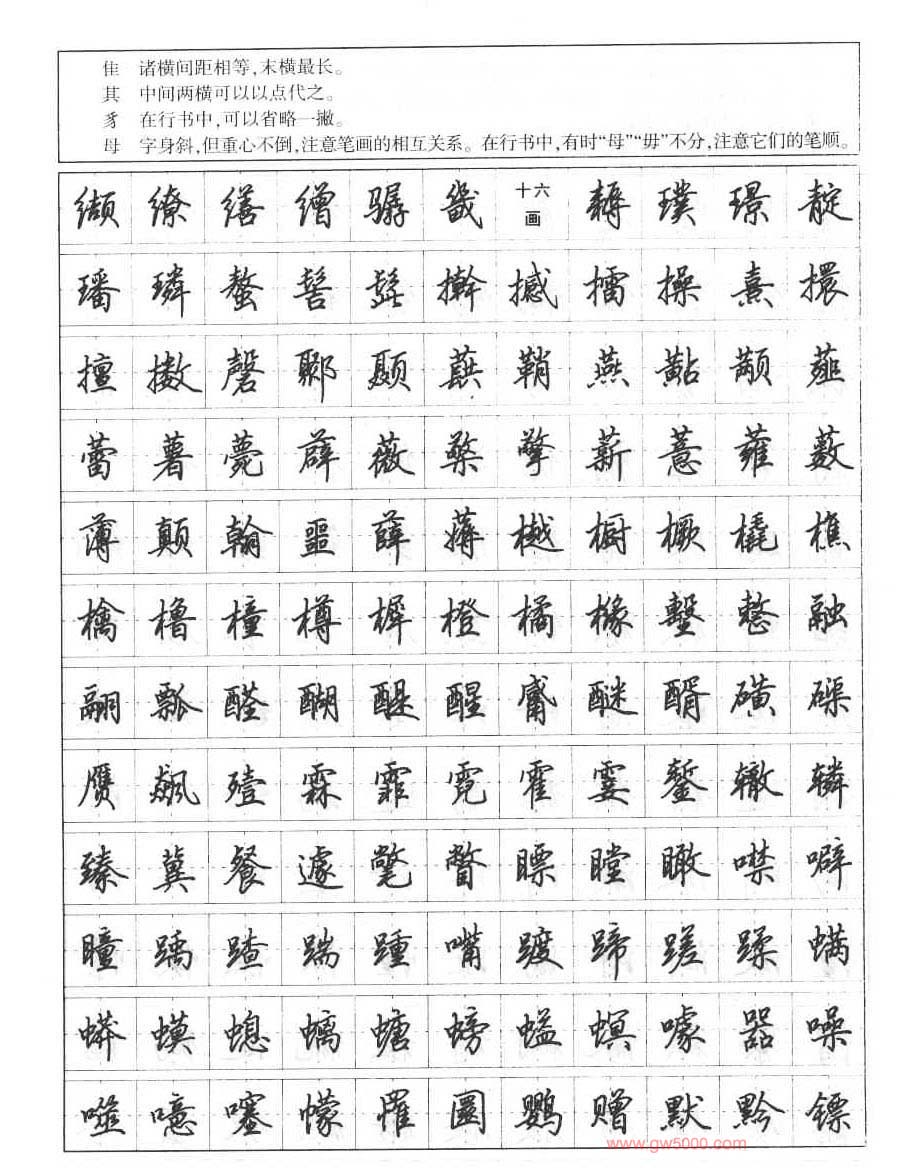 隹 诸横间距相等,末横最长。
其 中间两横可以以点代之。
豸 在行书中,可以省略一撇。
母 字身斜,但重心不倒,注意笔画的相互关系。在行书中,有时“母”“毋”不分,注意它们的笔顺。
缬 缭 缮 缯 骣 畿 十六画 耨 璞 璟 靛
璠 璘 螯 髻 髭 擀 撼 擂 操 熹 擐
擅 擞 磬 鄹 颞 蕻 鞘 燕 黇 颟 薤
蕾 薯 薨 薜 薇 檠 擎 薪 薏 蕹 薮
薄 颠 翰 噩 薛 薅 樾 橱 橛 橇 樵
檎 橹 橦 樽 樨 橙 橘 橼 墼 整 融
翮 瓢 醛 醐 醍 醒 醚 醑 磺 磲
赝 飙 殪 霖 霏 霓 霍 霎 錾 辙 辚
臻 冀 餐 遽 氅 瞥 瞟 瞠 瞰 噤 噼
瞳 踽 踏 踹 踵 嘴 踱 蹄 蹉 蹂 螨
蟒 蟆 螅 螭 螗 螃 螠 螟 噱 器 噪
噬 噫 噻 幪 罹 圜 鹦 赠 默 黔 镖
www.gw5000.com